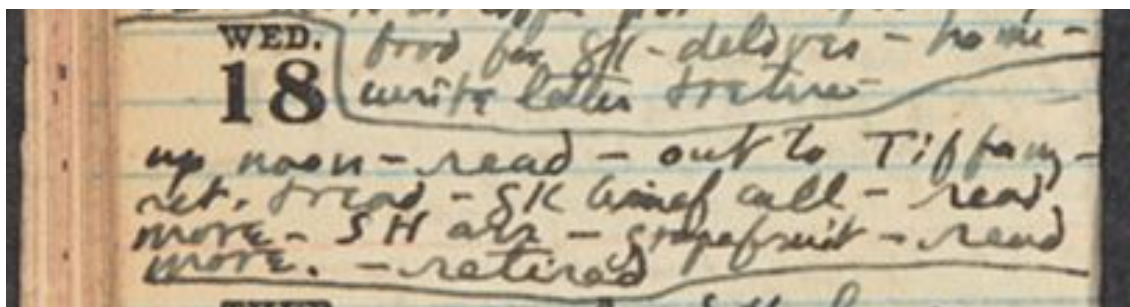 WED.
18
food for SK - deliver - home -
write letter & retire
up noon - read - out to Tiffany -
ret. & read - SK brief call - read
more - SH - grapefruit - read
more. - retired